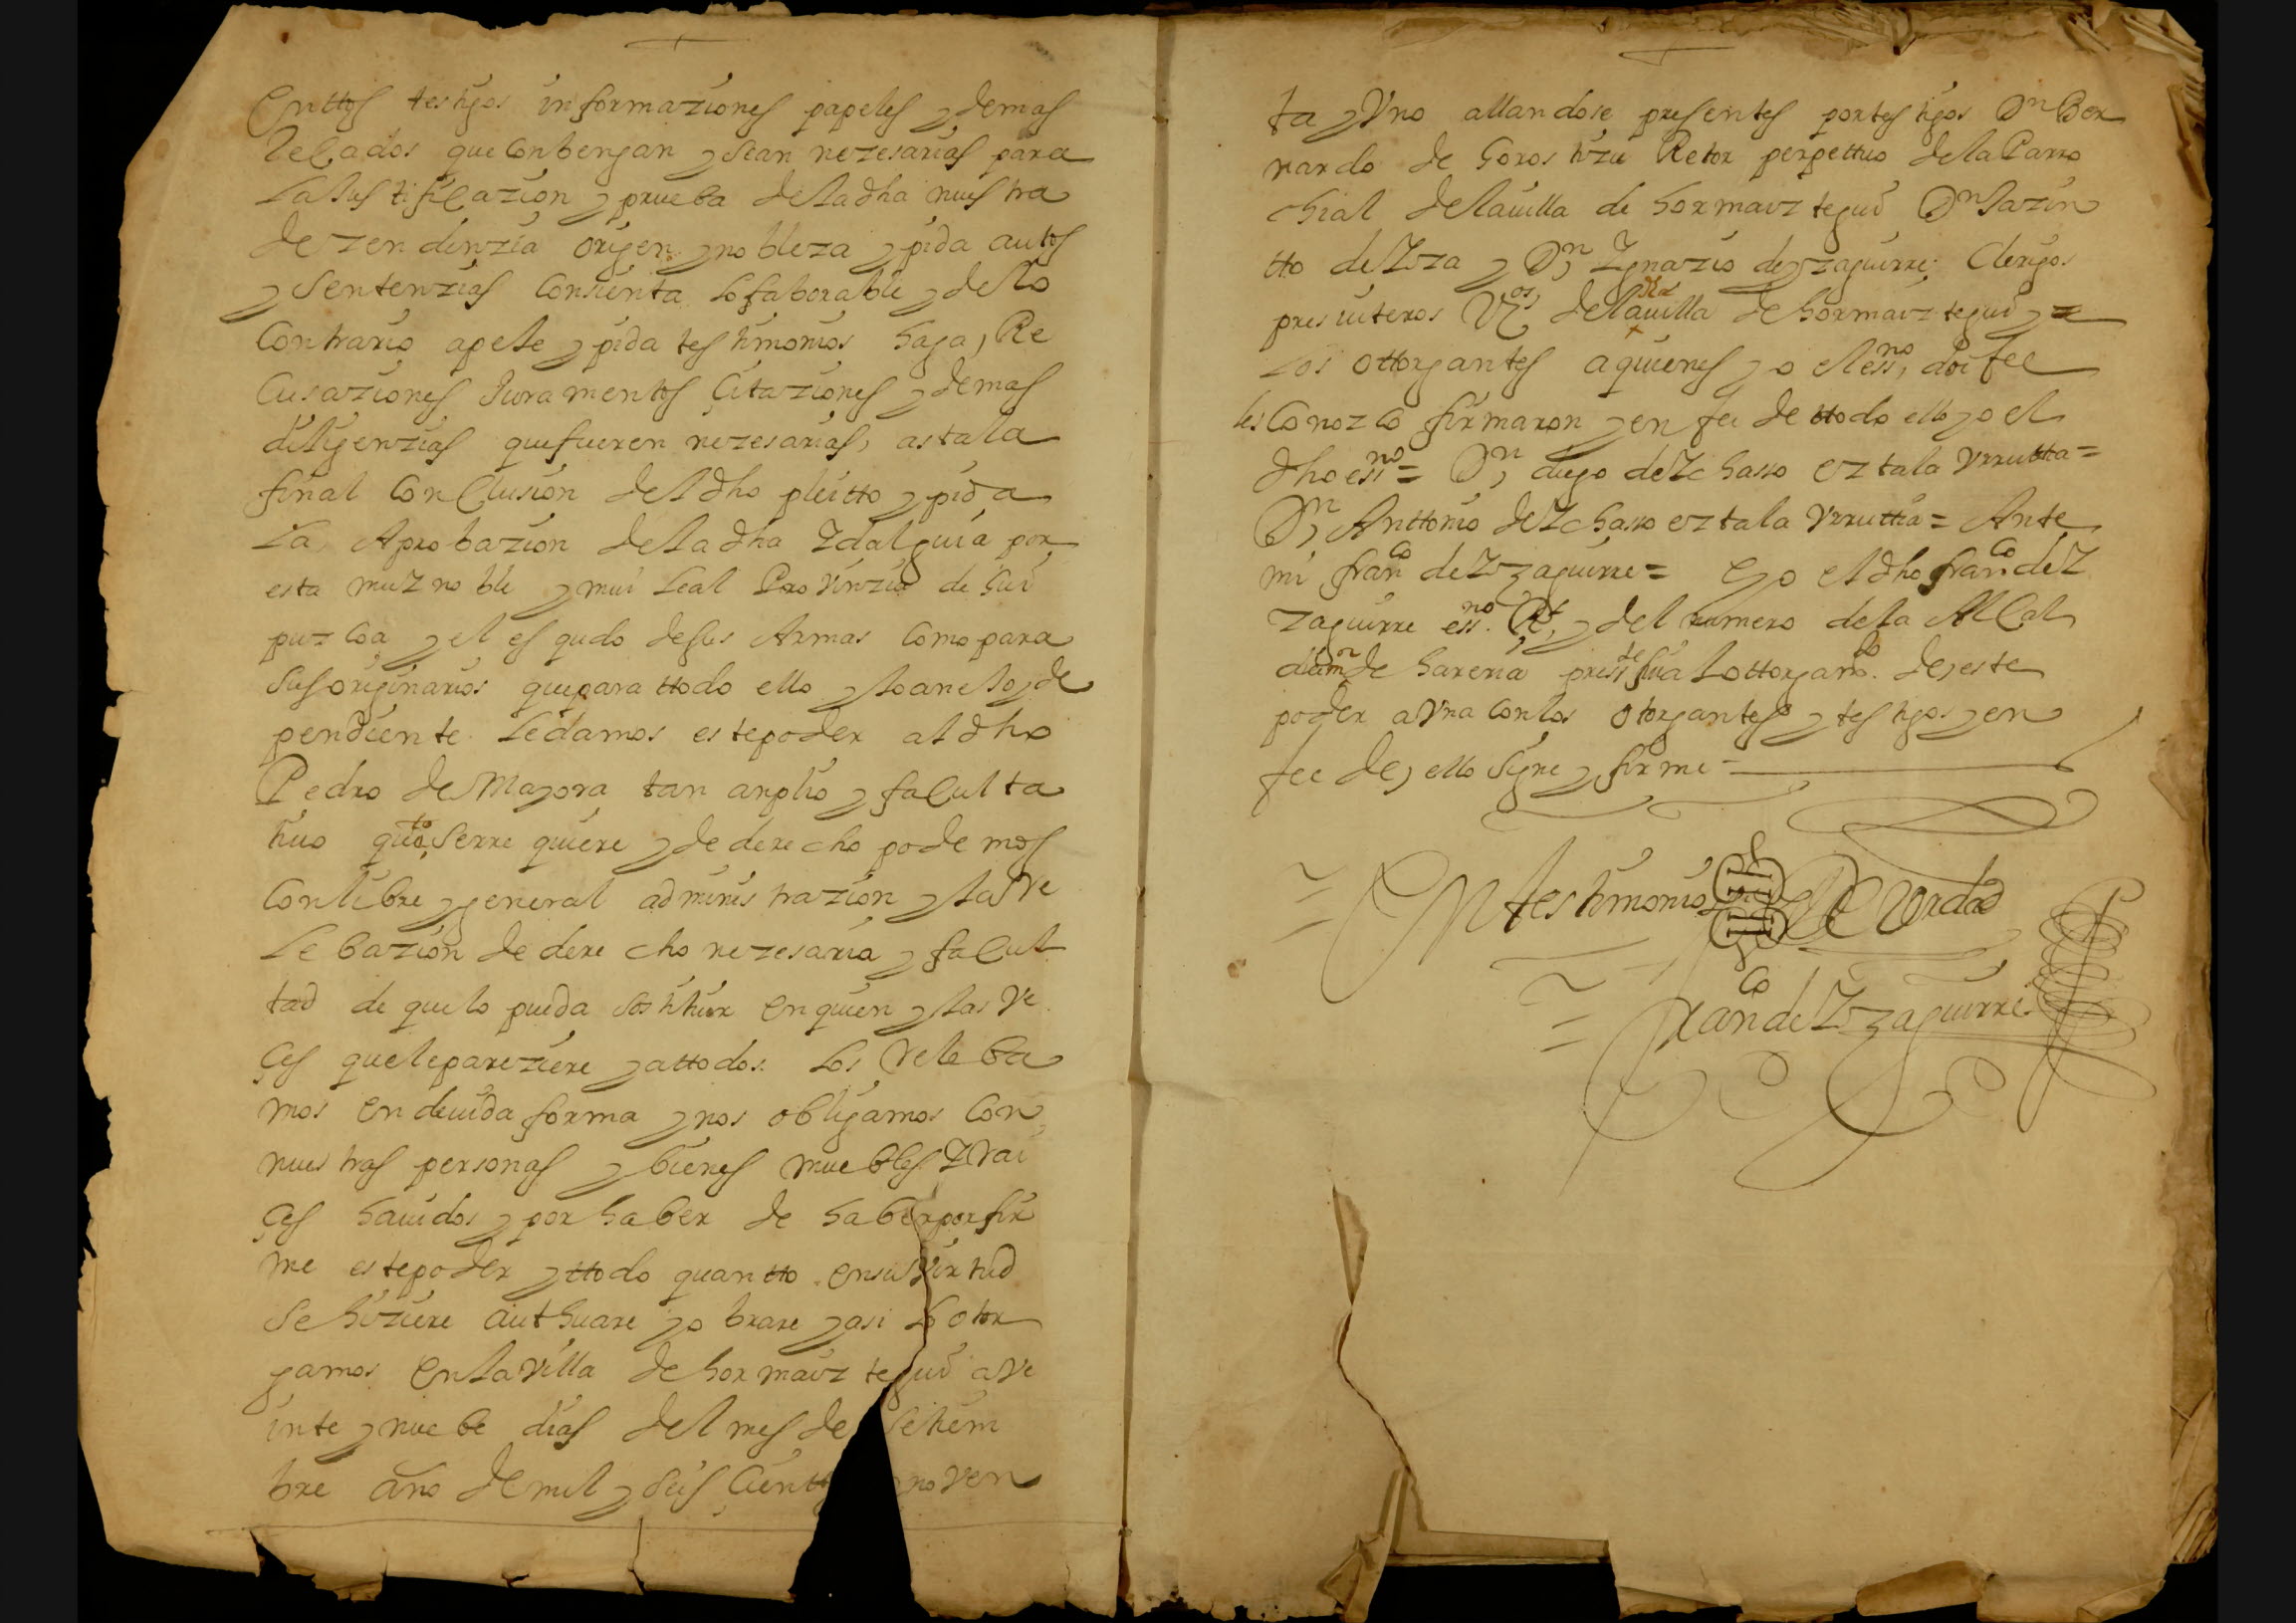 Enttos testigos informaziones papeles y demas
Recados que Conbengan y sean nezesarias para
la Justificazion y prueba de la dha nuestra
dezendenzia origen y nobleza y pida autos
y Sentenzias Consienta lo faborable y de lo
Contrario apele y pida testimonios haga, Re
Cusaziones Juramentos Çitaziones y demas
diligenzias que fueren nezesarias, asta la
final Conclusion del dho pleitto y pida
la Aprobazion de la dha Idalguia por
esta mui noble y mui leal Provinzia de Gui
puzcoa y el esqudo de sus Armas como para
sus originarios que para ttodo ello y lo anelo y de
pendiente le damos este poder al dho
Pedro de Mayora tan anplio y faculta
tiuo quto se rrequiere y de derecho podemos
Con libre y general administrazion y la Re
lebazion de derecho nezesaria y facul
tad de que lo pueda sostituir en quien y las ve
çes que le pareziere y a ttodos los releba
mos en deuida forma y nos obligamos Con
nuestras personas y bienes muebles I rai
çes hauidos y por haber de haber por fir
me este poder y ttodo quantto en su virtud
se hiziere authuare y obrare y asi lo otor
gamos en la villa de hormaiztegui a ve
inte y nuebe dias del mes de setiem
bre año de mil y seis Cientos y noven
ta y Uno allandose presentes por testigos Dn Ber
nardo de Gorostizu Retor perpettuo de la Parro
chial de la uilla de hormaiztegui Dn Jazin
tto de Ioza y Dn Ignazio de yzaguirre Clerigos
presuiteros Vos de la dha uilla de hormaiztegui y
los ottorgantes a quienes yo el essno, doi fee
les Conozco firmaron y en fee de ttodo ello yo el
dho essno = Dn diego de Ichasso eztala Vrruttia =
Dn Anttonio de Ichasso eztala Vrruttia = Ante
mi franco de Izaguirre = E yo el dho franco de I
zaguirre essno Rl, y del numero de la Alcal
dia mr de hareria presste fui al ottorgamto de, este
poder a vna con los otorgantes y testigos y en
fee de, ello signe y firme =
En testimonio de Verdad
franco de Izaguirre